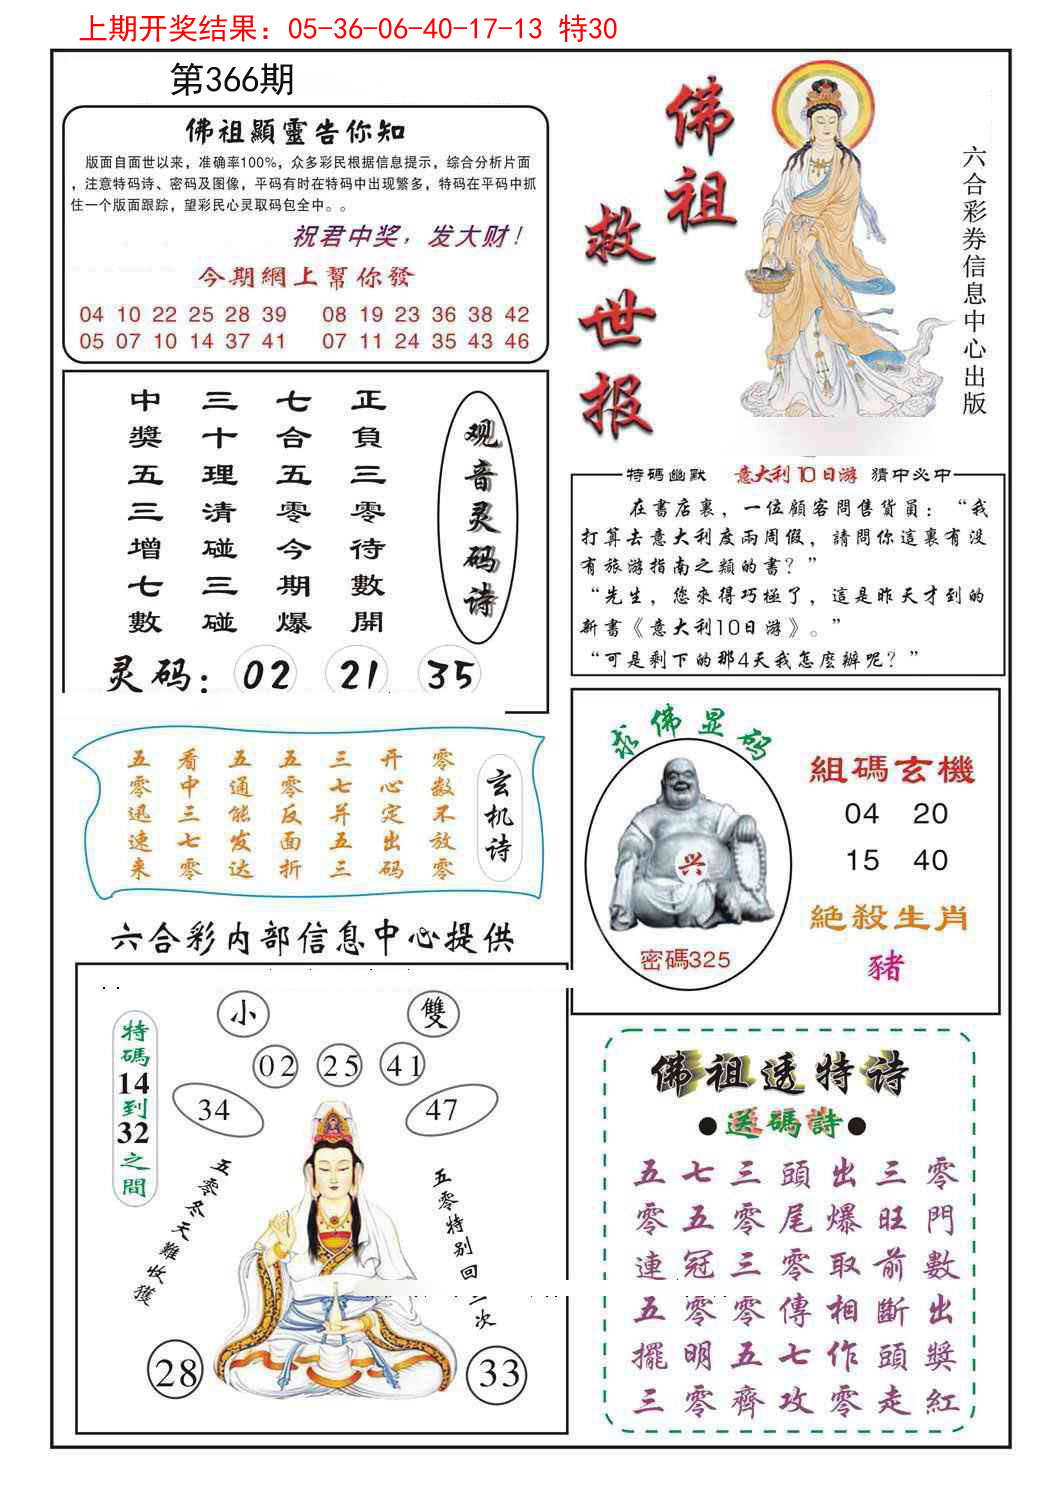 上期开奖结果：05-36-06-40-17-13 特30
第366期
佛祖顯靈告你知
版面自面世以来，准确率100%，众多彩民根据信息提示，综合分析片面
，注意特码诗、密码及图像，平码有时在特码中出现繁多，特码在平码中抓
住一个版面跟踪，望彩民心灵取码包全中。。
祝君中奖，发大财！
今期網上幫你發
04 10 22 25 28 39 08 19 23 36 38 42
05 07 10 14 37 41 07 11 24 35 43 46
佛祖
救世报
六合彩券信息中心出版
观音灵码诗
正負三零待數開
七合五零今期爆
三十理清碰三碰
中獎五三增七數
灵码：02 21 35
特碼幽默 意大利10日游 猜中必中
在書店裏，一位顧客問售貨員：“我
打算去意大利度兩周假，請問你這裏有没
有旅游指南之類的書？”
“先生，您來得巧極了，這是昨天才到的
新書《意大利10日游》。”
“可是剩下的那4天我怎麽辦呢？”
玄机诗
零数不放零
开心定出码
三七并五三
五零反面折
五通能发达
看中三七零
五零迅速来
求佛显码
兴
密碼325
組碼玄機
04 20
15 40
絶殺生肖
豬
六合彩内部信息中心提供
特碼14到32之間
小 雙
02 25 41
34 47
五零冬天難收獲
五零特别回
次
28 33
佛祖透特诗
●送碼詩●
零門數出獎紅
三旺前斷頭走
出爆取相作零
頭尾零傳七攻
三零三零五齊
七五冠零明零
五零連五擺三